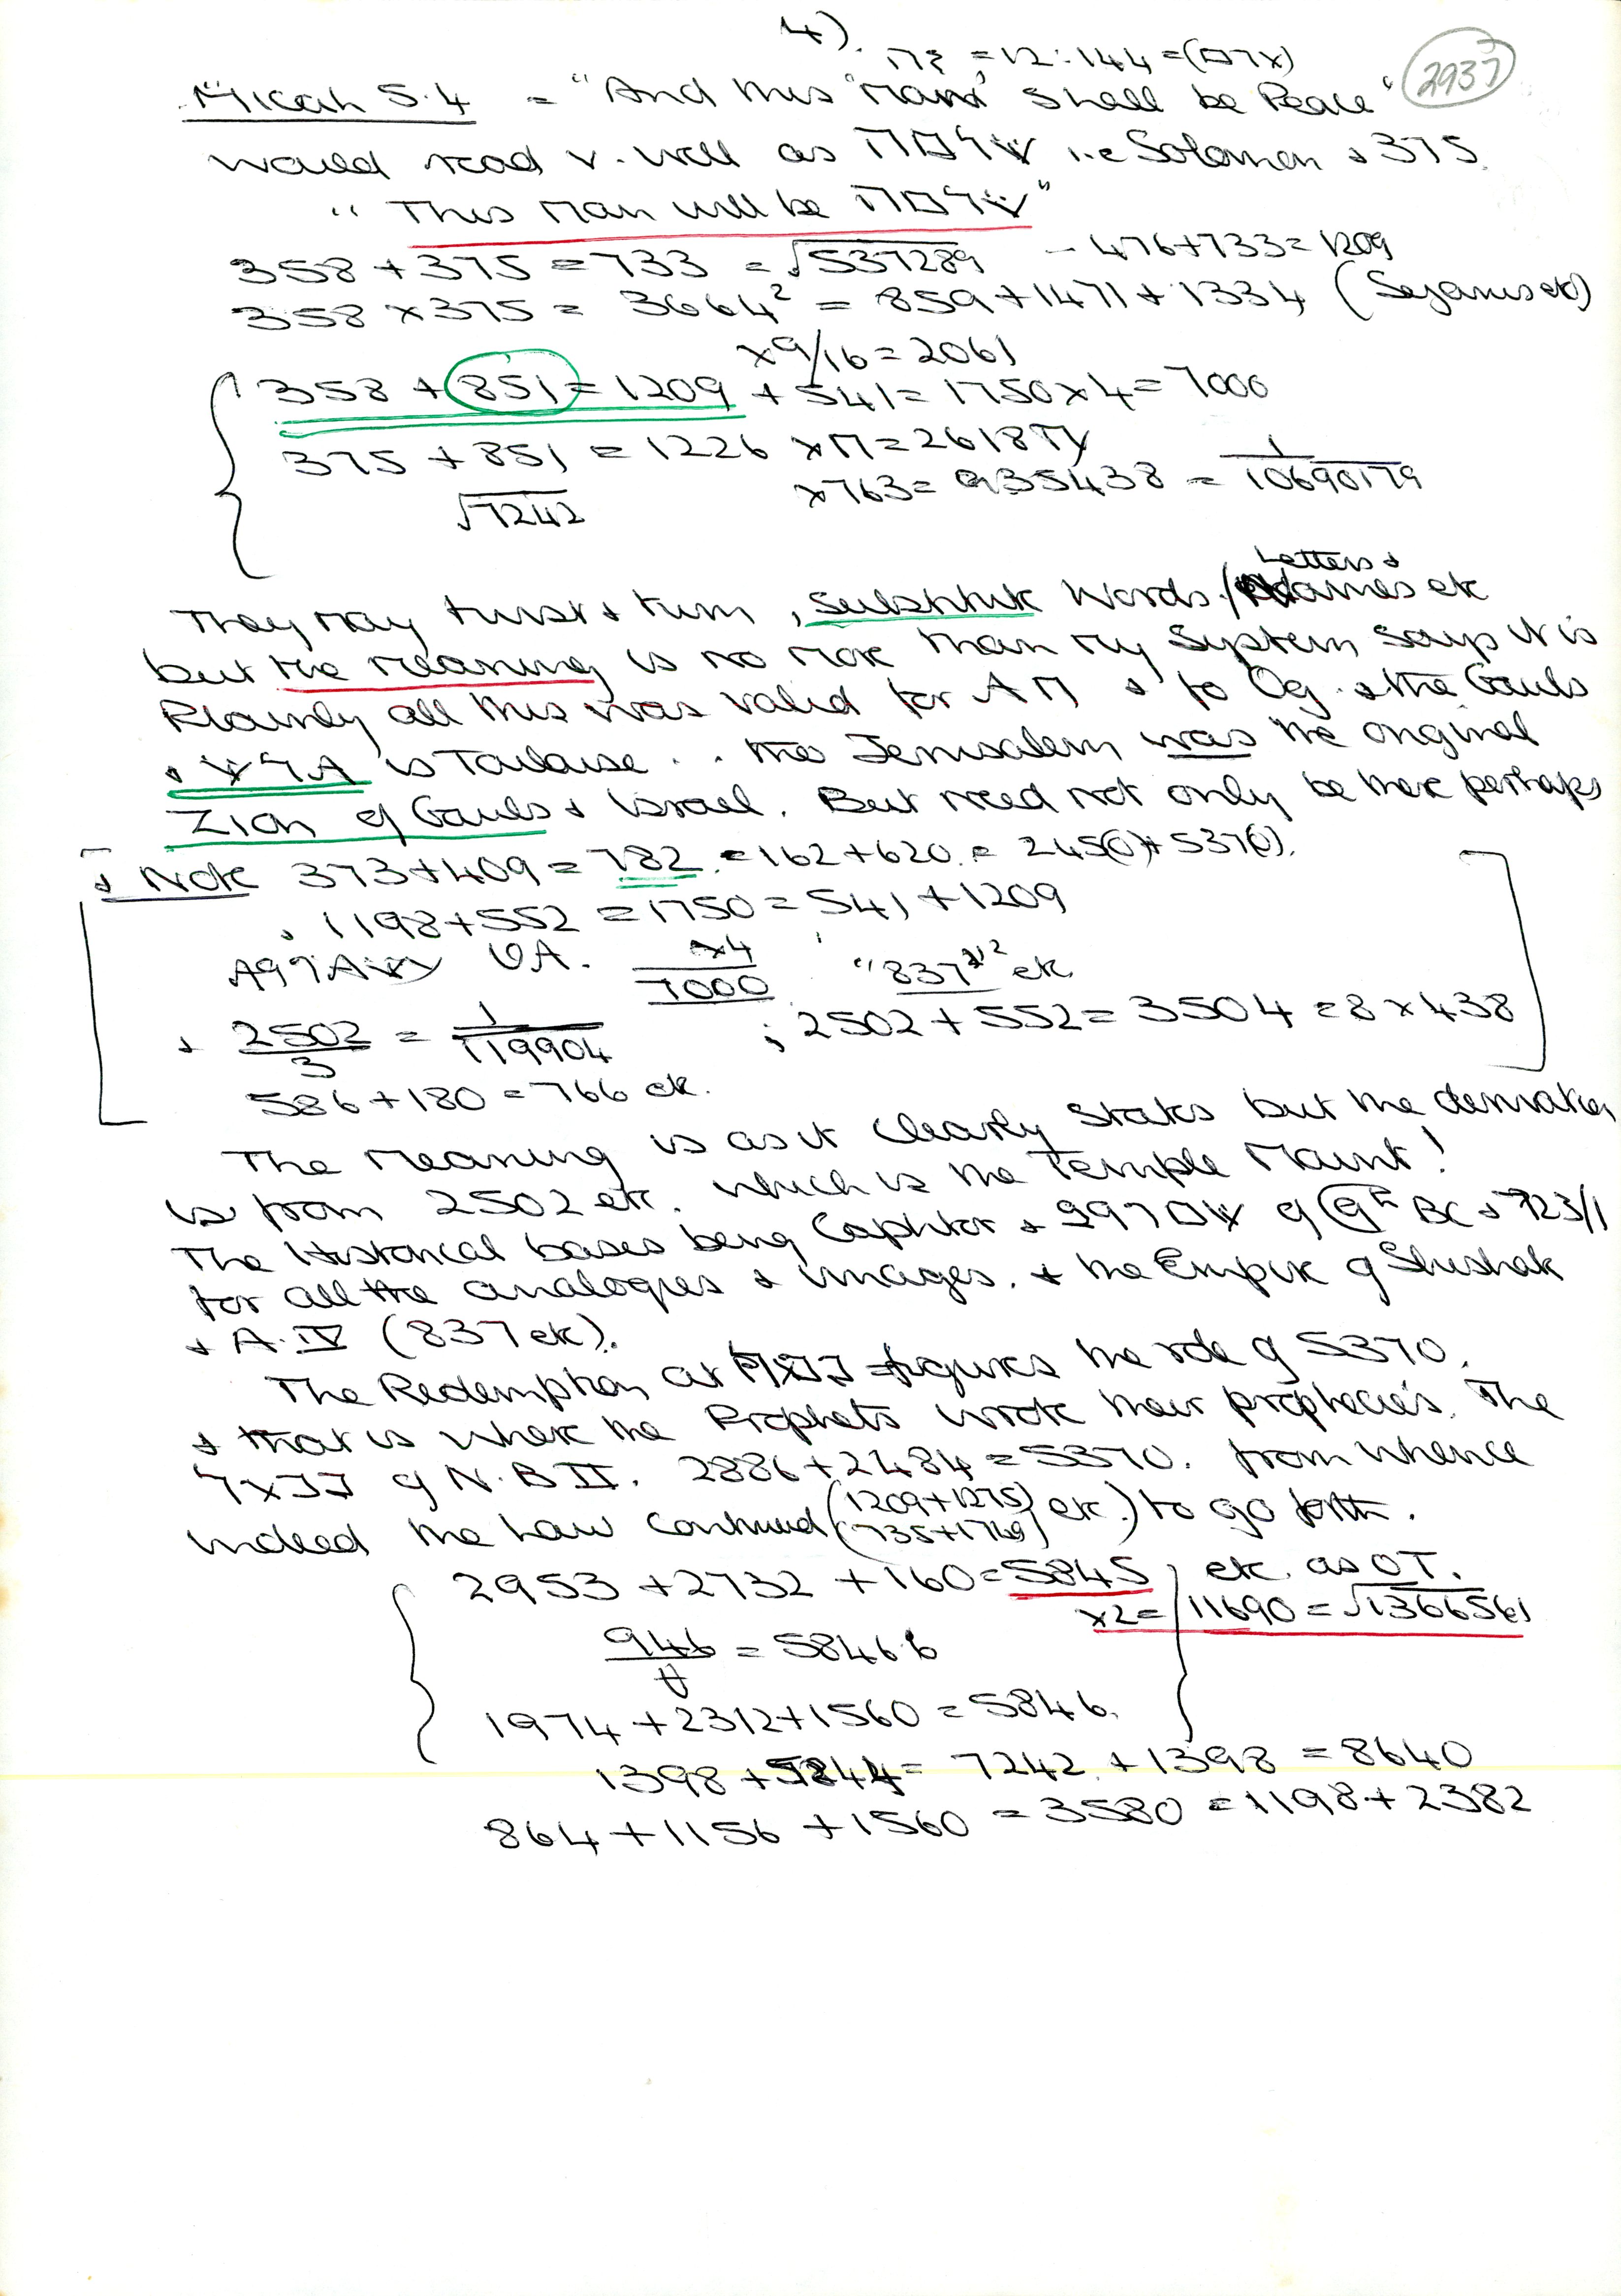 4).
= 12 : 144 =
2937
Micah 5.4 = "And this 'Man' shall be Peace"
would read v. well as i.e Solomon & 375.
"This Man will be "
358 + 375 = 733 = √537289 - 476+733 = 1209
358 × 375 = 3664² = 859 + 1471 + 1334 (Sejanus etc)
× 9/16 = 2061
358 + 851 = 1209 + 541 = 1750 × 4 = 7000
375 + 851 = 1226
× 763 = 935438 = 1/10690179
√7242
They may twist & turn, substitute Words / Letters & Names etc
but the meaning is no more than my System says it is
Plainly all this was valid for & to Og & the Gauls
& is Toulouse . . the Jerusalem was the original
Zion of Gauls & Israel. But need not only be there perhaps
& Note 373 + 409 = 782 = 162 + 620 = 245(0) + 537(0).
& 1198 + 552 = 1750 = 541 + 1209
×4
7000 "837" etc
& 2502/3 = 1/119904 ; 2502 + 552 = 3504 = 8 × 438
586 + 180 = 766 etc.
The meaning is as it clearly states but the derivation
is from 2502 etc. which is the Temple Mount!
The Historical bases being Caphtor & of 9th BC & 723/1
for all the analogies & images. & the Empire of Shishak
& A. IV (837 etc).
The Redemption at figures the role of 5370.
& that is where the Prophets wrote their prophecies. The
of N.B II. 2886 + 2484 = 5370. from whence
indeed the Law continued (1209+1275) (735+1749) etc.) to go forth.
2953 + 2732 + 160 = 5845 etc. as OT.
×2 = 11690 = √1366561
946 = 58466
1974 + 2312 + 1560 = 5846.
1398 + 5844 = 7242 + 1398 = 8640
864 + 1156 + 1560 = 3580 = 1198 + 2382